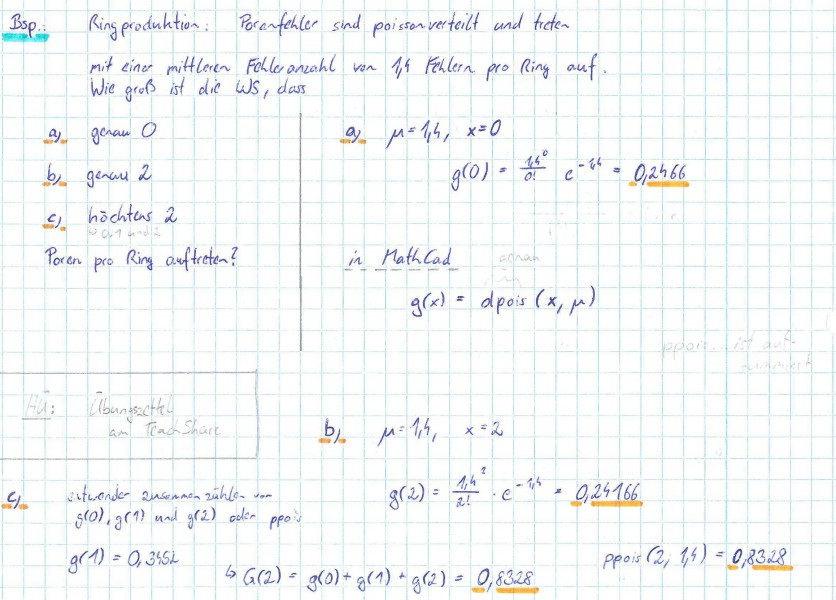 Bsp.: Ringproduktion: Porenfehler sind poissonverteilt und treten
mit einer mittleren Fehleranzahl von 1,4 Fehlern pro Ring auf.
Wie groß ist die WS, dass
a) genau 0
b) genau 2
c) höchtens 2
0,1 und 2
Poren pro Ring auftreten?
a) μ = 1,4, x = 0
g(0) = 1,4^0/0! e^-1,4 = 0,2466
in MathCad
genau
g(x) = dpois (x, μ)
ppois... ist auf-
summiert
HÜ: Übungszettel
am TeachShare
b) μ = 1,4, x = 2
g(2) = 1,4^2/2! · e^-1,4 = 0,24166
c) entweder zusammenzählen von
g(0), g(1) und g(2) oder ppois
g(1) = 0,3452
↳ G(2) = g(0) + g(1) + g(2) = 0,8328
ppois (2, 1,4) = 0,8328